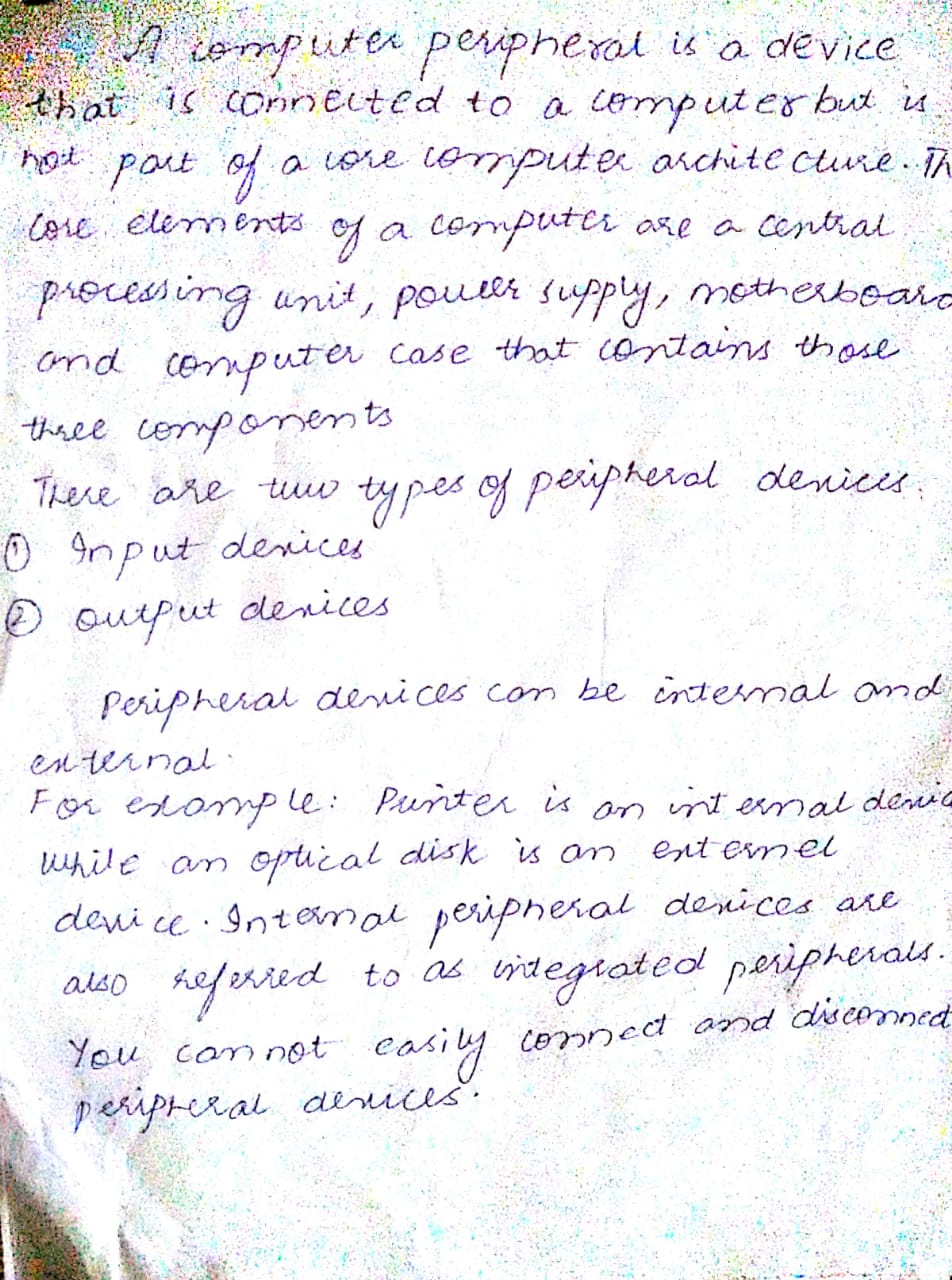 A computer peripheral is a device
that is connected to a computer but is
not part of a core computer architecture. Th
core elements of a computer are a central
processing unit, power supply, motherboard
and computer case that contains those
three components
There are two types of peripheral devices.
① Input devices
② output devices
Peripheral devices can be internal and
external.
For example: Printer is an internal devic
while an optical disk is an externel
device. Internal peripheral devices are
also referred to as integrated peripherals.
You can not easily connect and disconnect
peripheral devices.